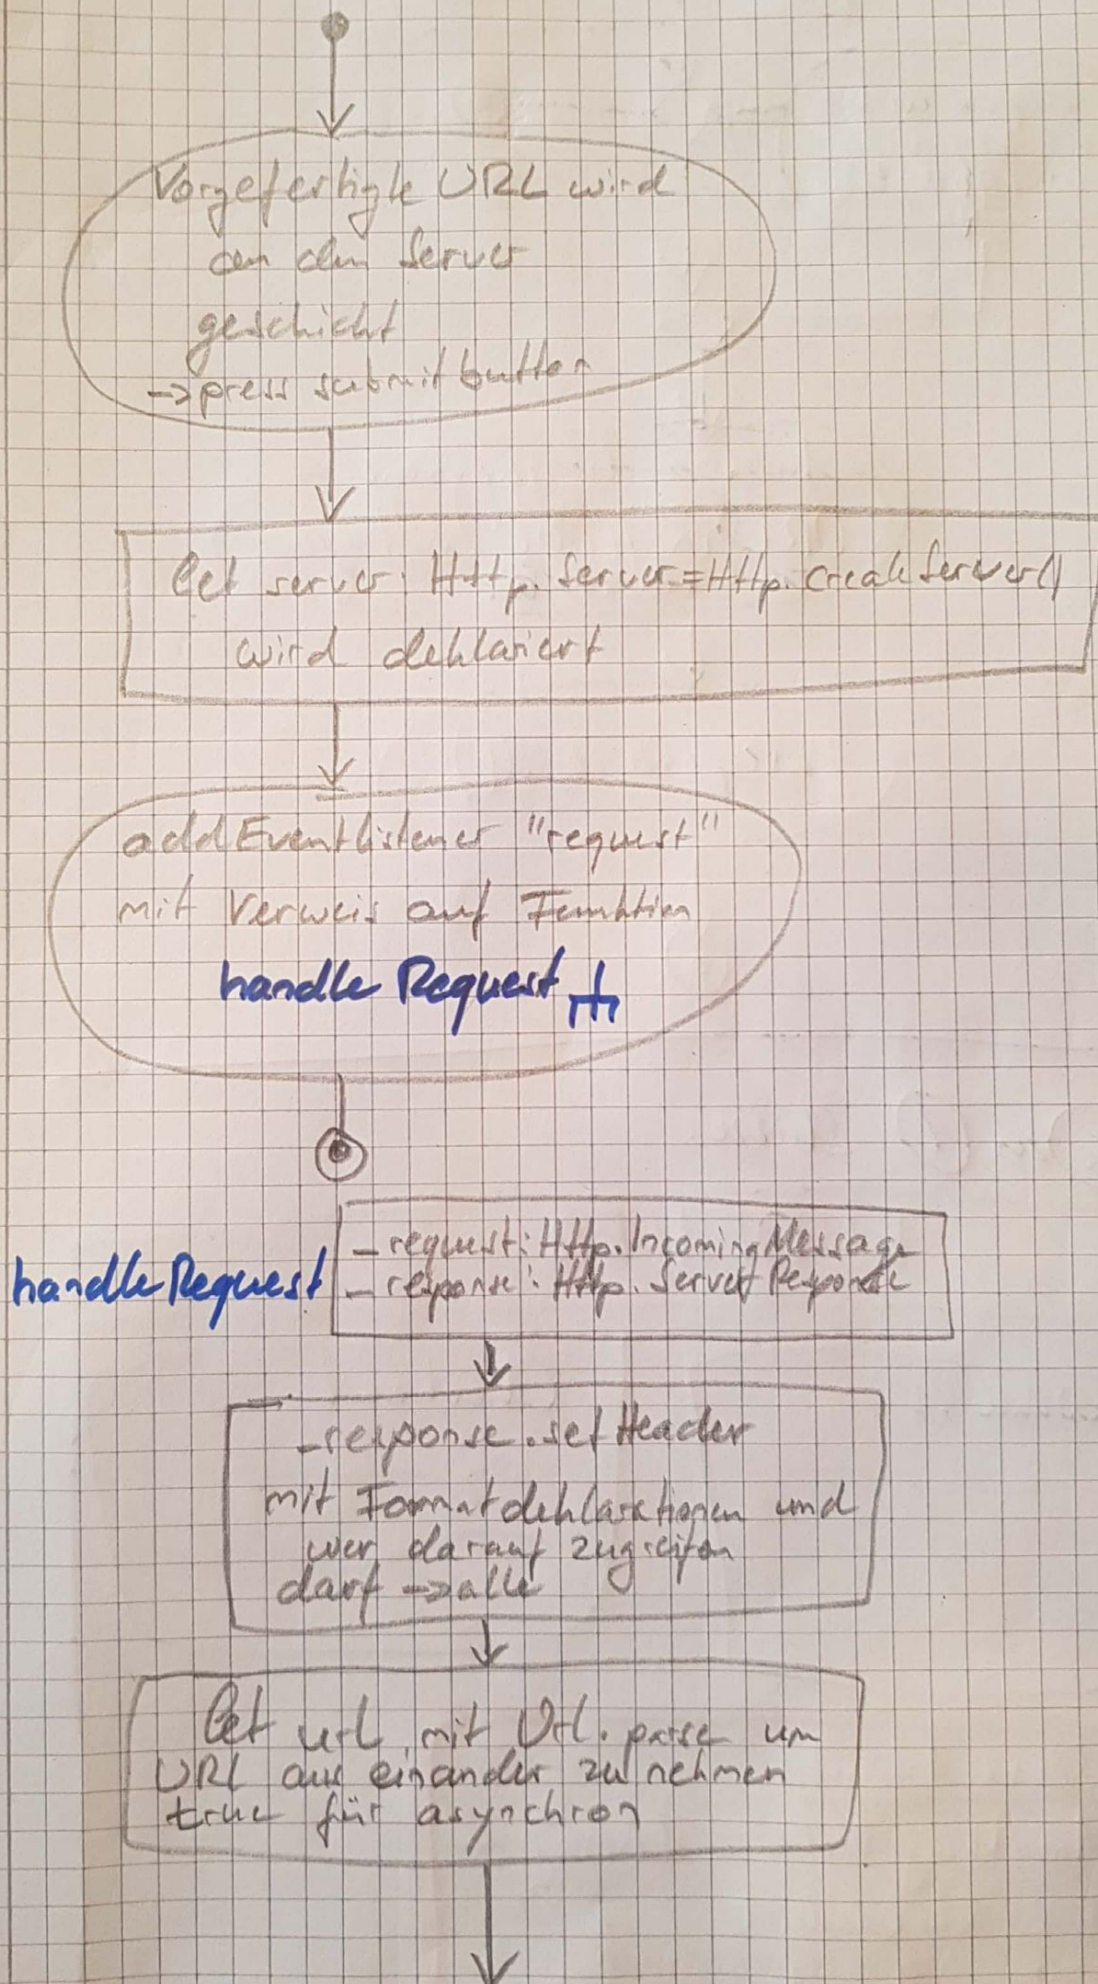 Vorgefertigte URL wird
an den Server
geschickt
->press submit button
let server: Http.Server=Http.createServer()
wird deklariert
addEventlistener "request"
mit Verweis auf Funktion
handleRequest
handleRequest
_request: Http.IncomingMessage
_response: Http.ServerResponse
_response.setHeader
mit Formatdeklarationen und
wer darauf zugreifen
darf ->alle
let url mit Url.parse um
URL aus einander zu nehmen
true für asynchron